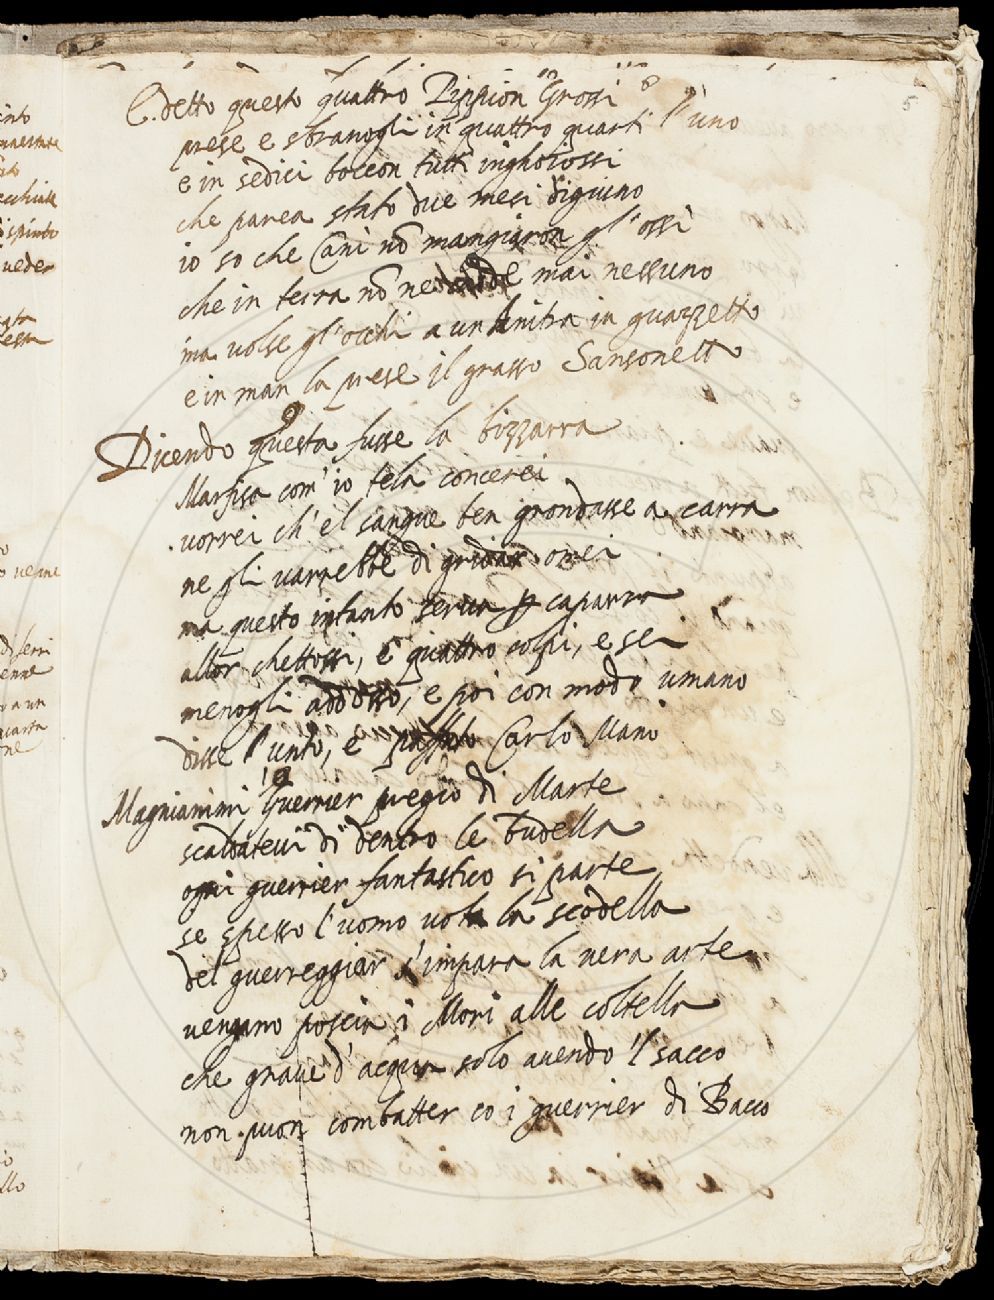 5
E detto questo quattro Pippion Grossi
prese e sbranogli in quattro quarti l'uno
e in sedici boccon tutti inghiotossi
che parea stato due mesi digiuno
io so che Cani nō mangiaron gl'ossi
che in terra nō ne cadde mai nessuno
ma volse gl'occhi a un Anitra in guazzetto
e in man la prese il grasso Sansonetto
Dicendo questa fusse la bizzarra
Marfisa com'io tela concerei
vorrei ch'el sangue ben grondasse a carra
ne gli varrebbe di gridar omei
ma questo intanto serva p caparra
allor chettossi, e quattro colpi, e sei
menogli addosso, e poi con modo umano
disse l'unto, e Carlo Mano
Magnianimi Guerrier pregio di Marte
scaldatevi di dentro le budella
ogni guerrier fantastico si parte
se spesso l'uomo vota la scodella
del guerreggiar s'impara la vera arte
vengano poscia i Mori alle coltella
che grave d'acqua solo avendo 'l sacco
non puon combatter co i guerrier di Bacco